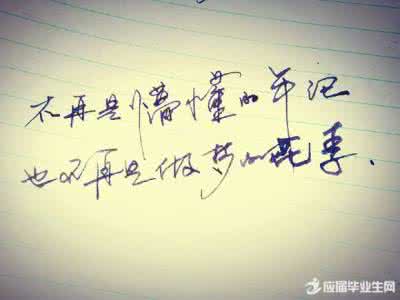 不再是懵懂的年纪
也不再是做梦的花季.
应届毕业生网